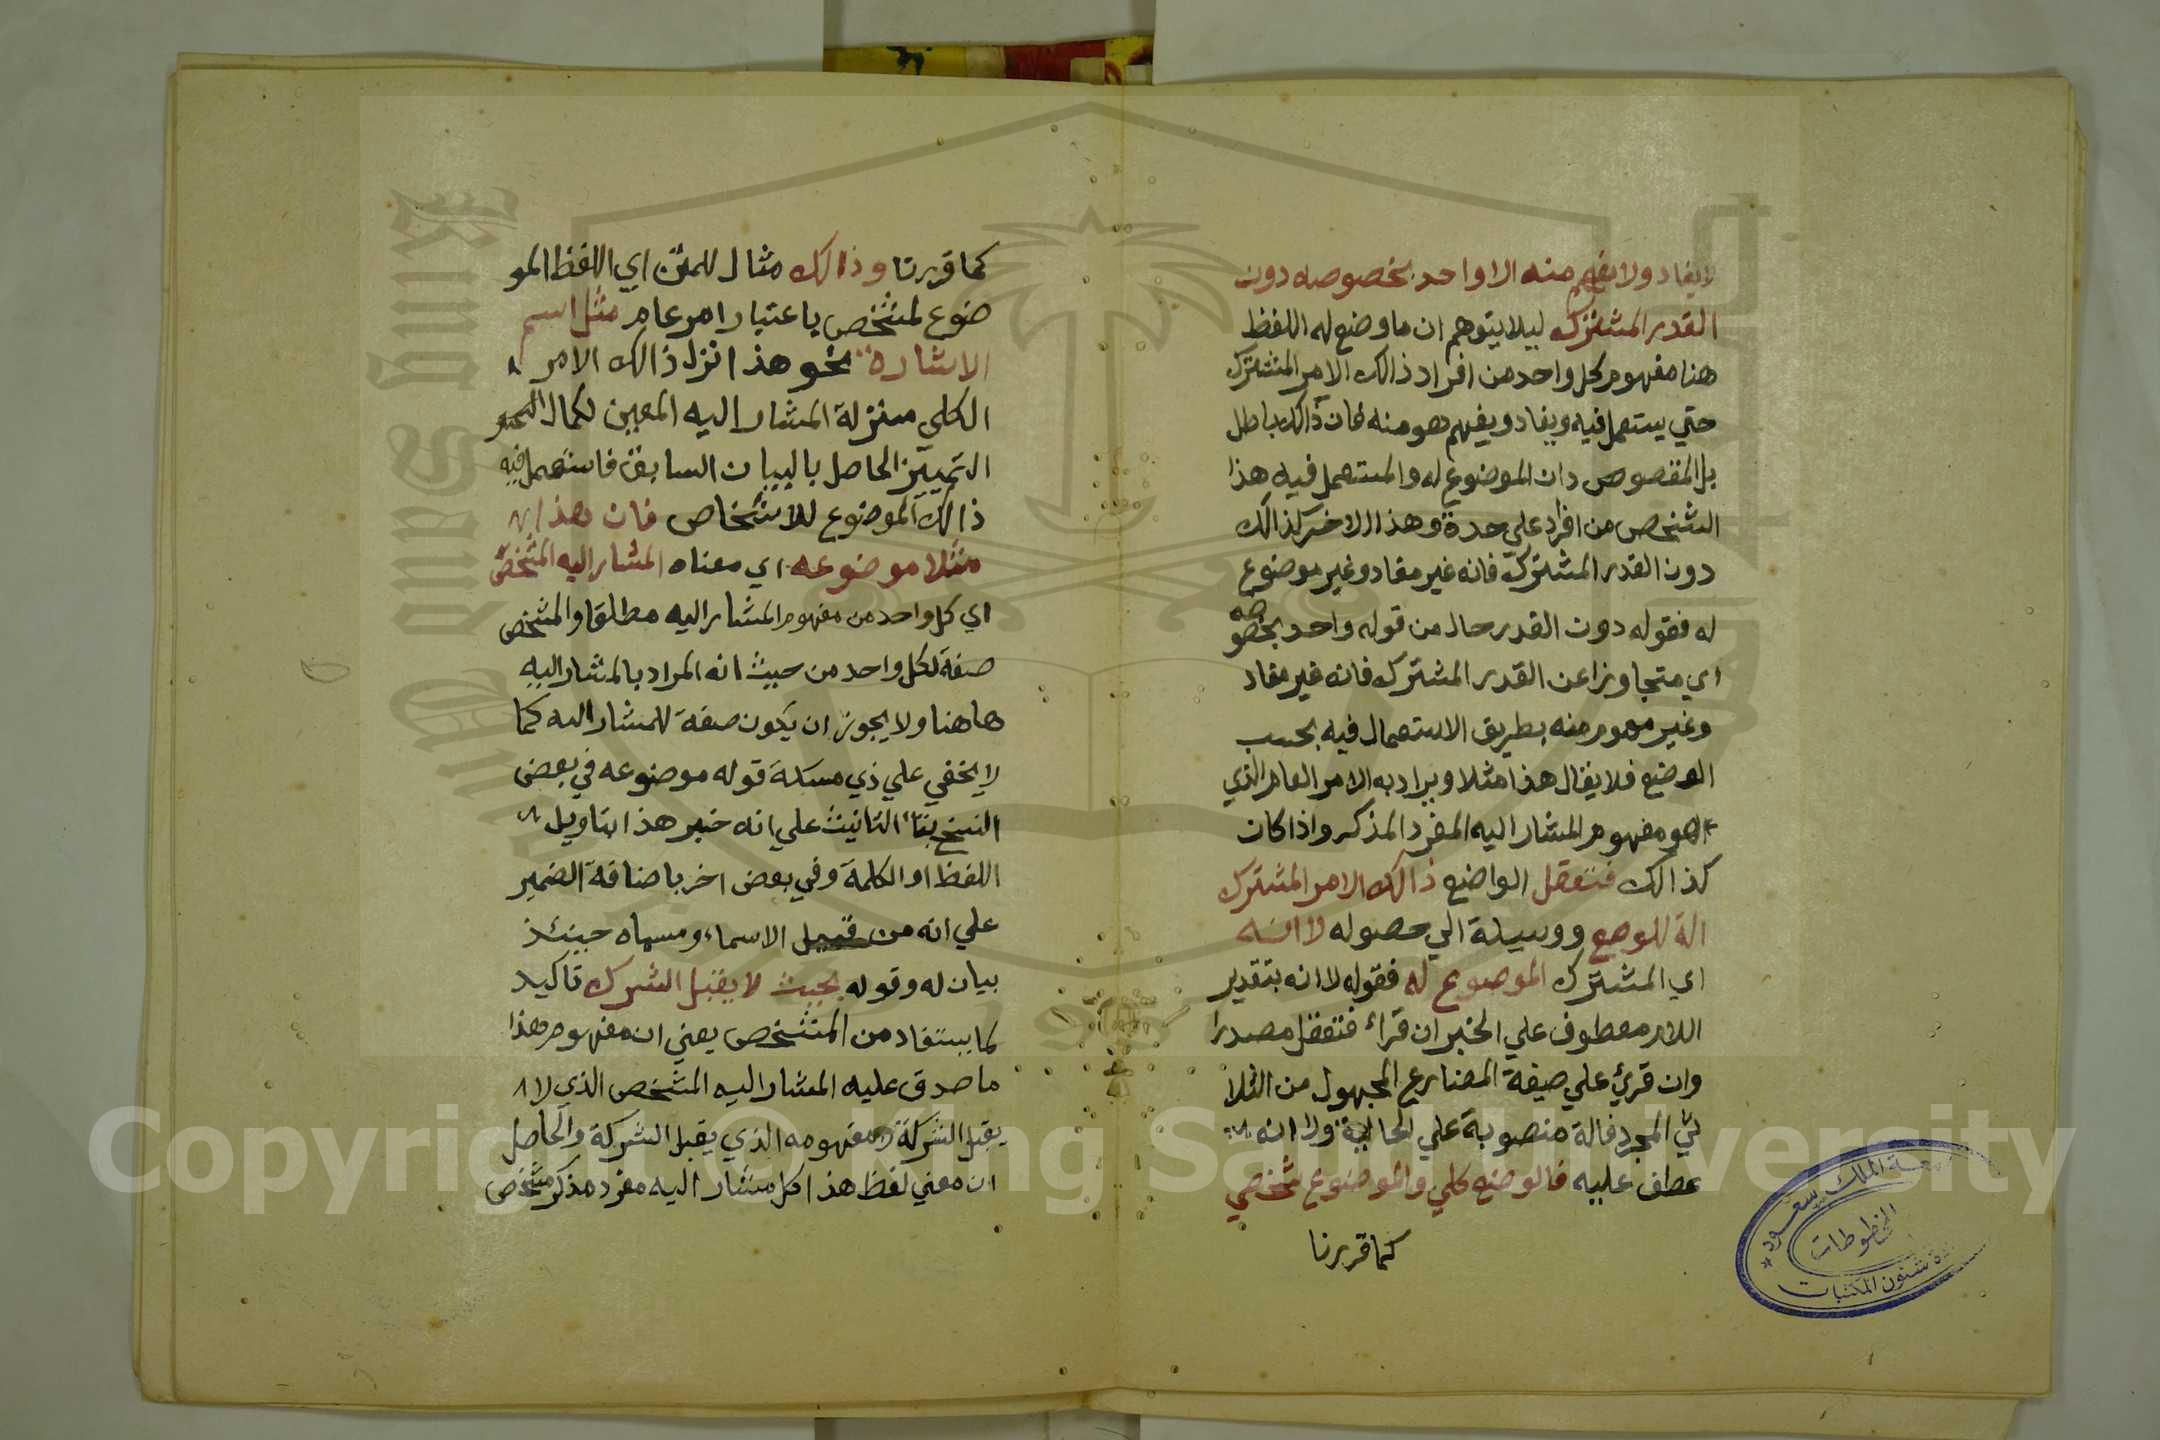 لا يفاد ولا يفهم منه الا واحد بخصوصه دون
القدر المشترك ليلا يتوهم ان ما وضع له اللفظ
هنا مفهوم كل واحد من افراد ذالك الامر المشترك
حتي يستعمل فيه ويفاد ويفهم هو منه فان ذالك باطل
بل المقصوص دان الموضوع له والمستعمل فيه هذا
الشخص من افراد علي حدة وهذا الاخر كذالك
دون القدر المشترك فانه غير مفاد وغير موضوع
له فقوله دون القدر حال من قوله واحد بخصوصه
اي متجاوزا عن القدر المشترك فانه غير مفاد
وغير مفهوم منه بطريق الاستعمال فيه بحسب
الوضع فلا يقال هذا مثلا ويراد به الامر العام الذي
هو مفهوم المشار اليه المفرد المذكر واذا كان
كذالك فتعقل الواضع ذالك الامر المشترك
الة للوضع ووسيلة الي حصوله لا انه
اي المشترك الموضوع له فقوله لا انه بتقدير
اللام معطوف علي الخبر ان قراء فتعقل مصدرا
وان قرئ علي صيغة المضارع المجهول من الثلا
ثي المجرد فالة منصوبة علي الحالية ولا انه
عطف عليه فالوضع كلي والموضوع شخصي
كما قررنا
كما قررنا وذالك مثال للمتن اي اللفظ المو
ضوع لمشخص باعتبار امر عام مثل اسم
الاشارة نحو هذا نزل ذالك الامر
الكلي منزلة المشار اليه المعين لكمال
التمييز الحاصل بالبيان السابق فاستعمل فيه
ذالك الموضوع للاشخاص فان هذا
مثلا موضوعه اي معناه المشار اليه المشخص
اي كل واحد من مفهوم المشار اليه مطلقا والمشخص
صفة لكل واحد من حيث انه المراد بالمشار اليه
هاهنا ولا يجوز ان يكون صفة للمشار اليه كما
لا يخفي علي ذي مسكة قوله موضوعه في بعض
النسخ بتاء التانيث علي انه خبر هذا بتاويل
اللفظ او الكلمة وفي بعض اخر باضافة الضمير
علي انه من قبيل الاسماء ومسماه حينئذ
بيان له وقوله بحيث لا يقبل الشرك تاكيد
لما يستفاد من المتشخص يعني ان مفهوم هذا
ما صدق عليه المشار اليه المشخص الذي لا
يقبل الشركة لا مفهومه الذي يقبل الشركة والحاصل
ان معني لفظ هذا كل مشار اليه مفرد مذكر مشخص
جامعة الملك سعود
المخطوطات
شئون المكتبات
Copyright © King Saud University